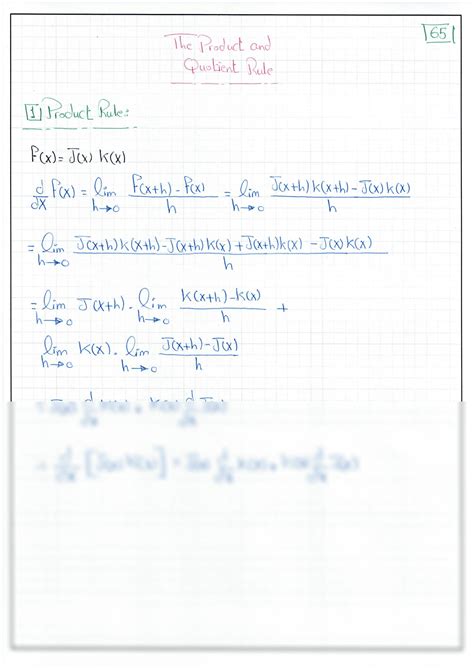 65
The Product and
Quotient Rule
1 Product Rule:
F(x) = J(x) K(x)
d/dx F(x) = lim h→0 F(x+h) - F(x) / h = lim h→0 J(x+h) K(x+h) - J(x) K(x) / h
= lim h→0 J(x+h) K(x+h) - J(x+h) K(x) + J(x+h) K(x) - J(x) K(x) / h
= lim h→0 J(x+h) . lim h→0 K(x+h) - K(x) / h +
lim h→0 K(x) . lim h→0 J(x+h) - J(x) / h